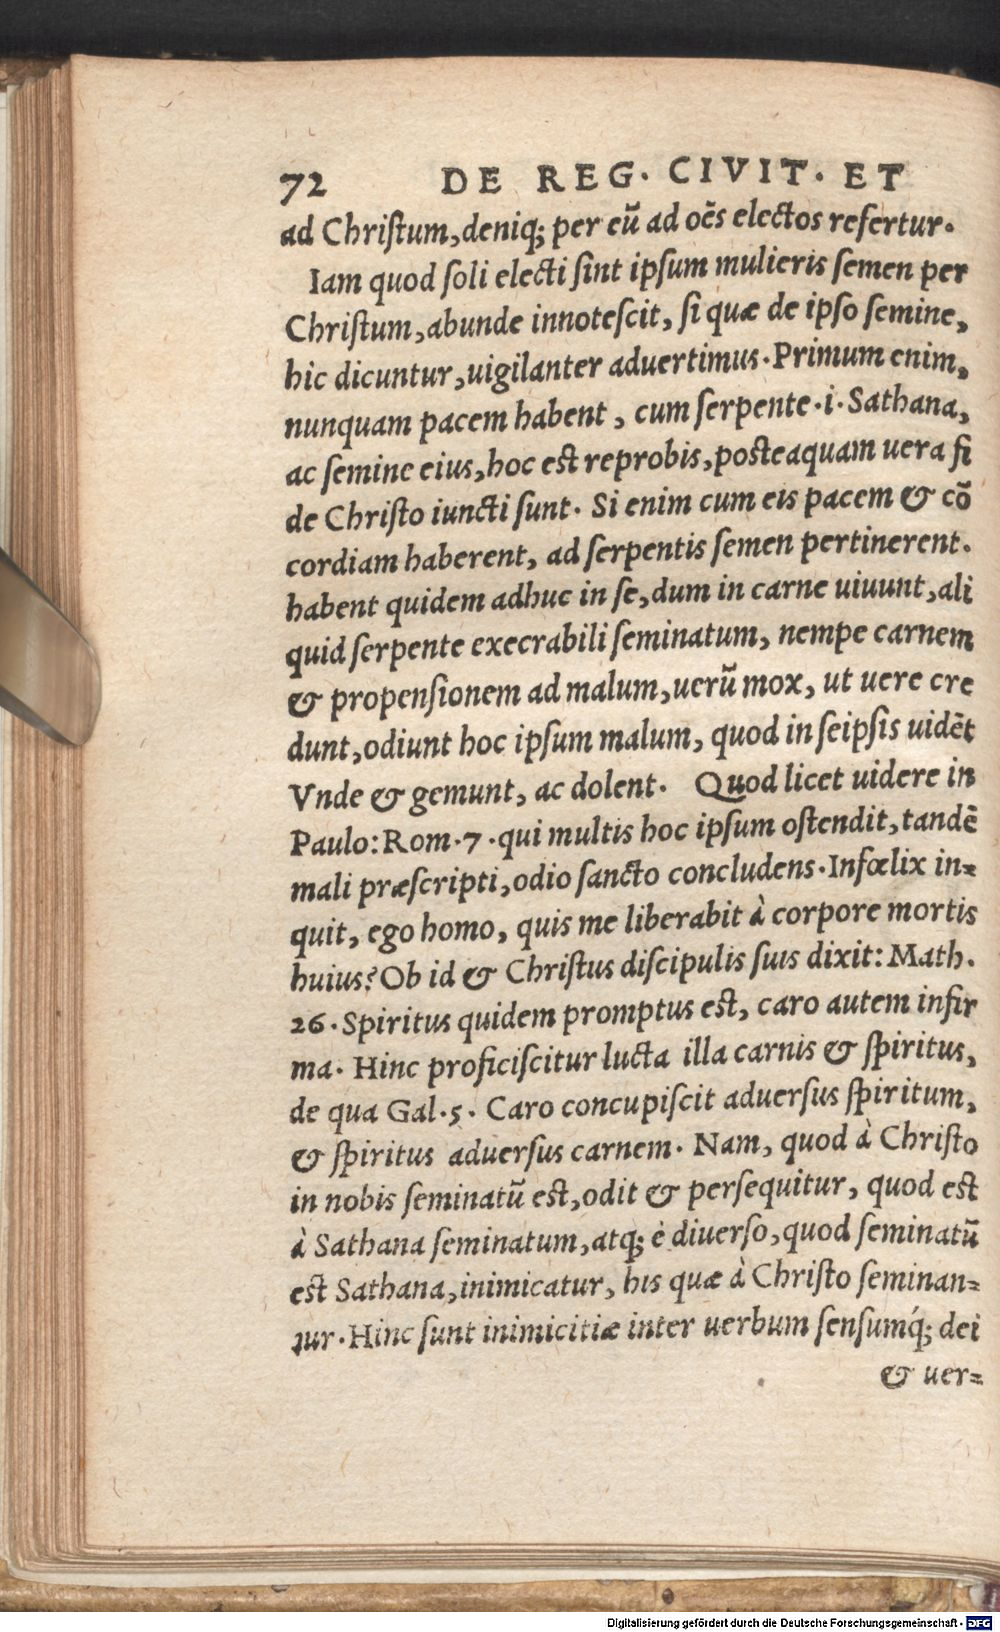 72 DE REG. CIVIT. ET
ad Chriſtum, deniq; per eũ ad oẽs electos refertur.
Iam quod ſoli electi ſint ipſum mulieris ſemen per
Chriſtum, abunde innoteſcit, ſi quæ de ipſo ſemine,
hic dicuntur, uigilanter aduertimus. Primum enim,
nunquam pacem habent, cum ſerpente .i. Sathana,
ac ſemine eius, hoc eſt reprobis, poſteaquam uera fi
de Chriſto iuncti ſunt. Si enim cum eis pacem & cõ
cordiam haberent, ad ſerpentis ſemen pertinerent.
habent quidem adhuc in ſe, dum in carne uiuunt, ali
quid ſerpente execrabili ſeminatum, nempe carnem
& propenſionem ad malum, uerũ mox, ut uere cre
dunt, odiunt hoc ipſum malum, quod in ſeipſis uidẽt
Vnde & gemunt, ac dolent. Quod licet uidere in
Paulo: Rom. 7. qui multis hoc ipſum oſtendit, tandẽ
mali præſcripti, odio ſancto concludens. Infœlix in=
quit, ego homo, quis me liberabit à corpore mortis
huius? Ob id & Chriſtus diſcipulis ſuis dixit: Math.
26. Spiritus quidem promptus eſt, caro autem infir
ma. Hinc proficiſcitur lucta illa carnis & ſpiritus,
de qua Gal. 5. Caro concupiſcit aduerſus ſpiritum,
& ſpiritus aduerſus carnem. Nam, quod à Chriſto
in nobis ſeminatũ eſt, odit & perſequitur, quod eſt
à Sathana ſeminatum, atq; è diuerſo, quod ſeminatũ
eſt Sathana, inimicatur, his quæ à Chriſto ſeminan=
tur. Hinc ſunt inimicitiæ inter uerbum ſenſumq́; dei
& uer=
Digitalisierung gefördert durch die Deutsche Forschungsgemeinschaft - DFG